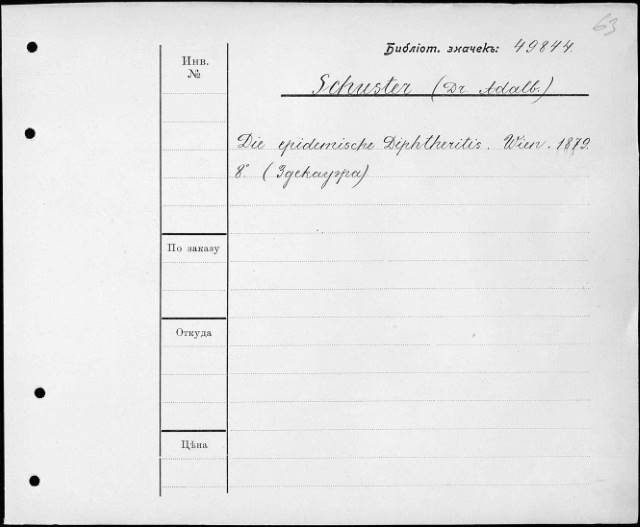 63
Библіот. значекъ: 49844.
Инв.
№
Schuster (Dr Adalb.)
Die epidemische Diphtheritis. Wien. 1879.
8°. (Здекауэра)
По заказу
Откуда
Цѣна